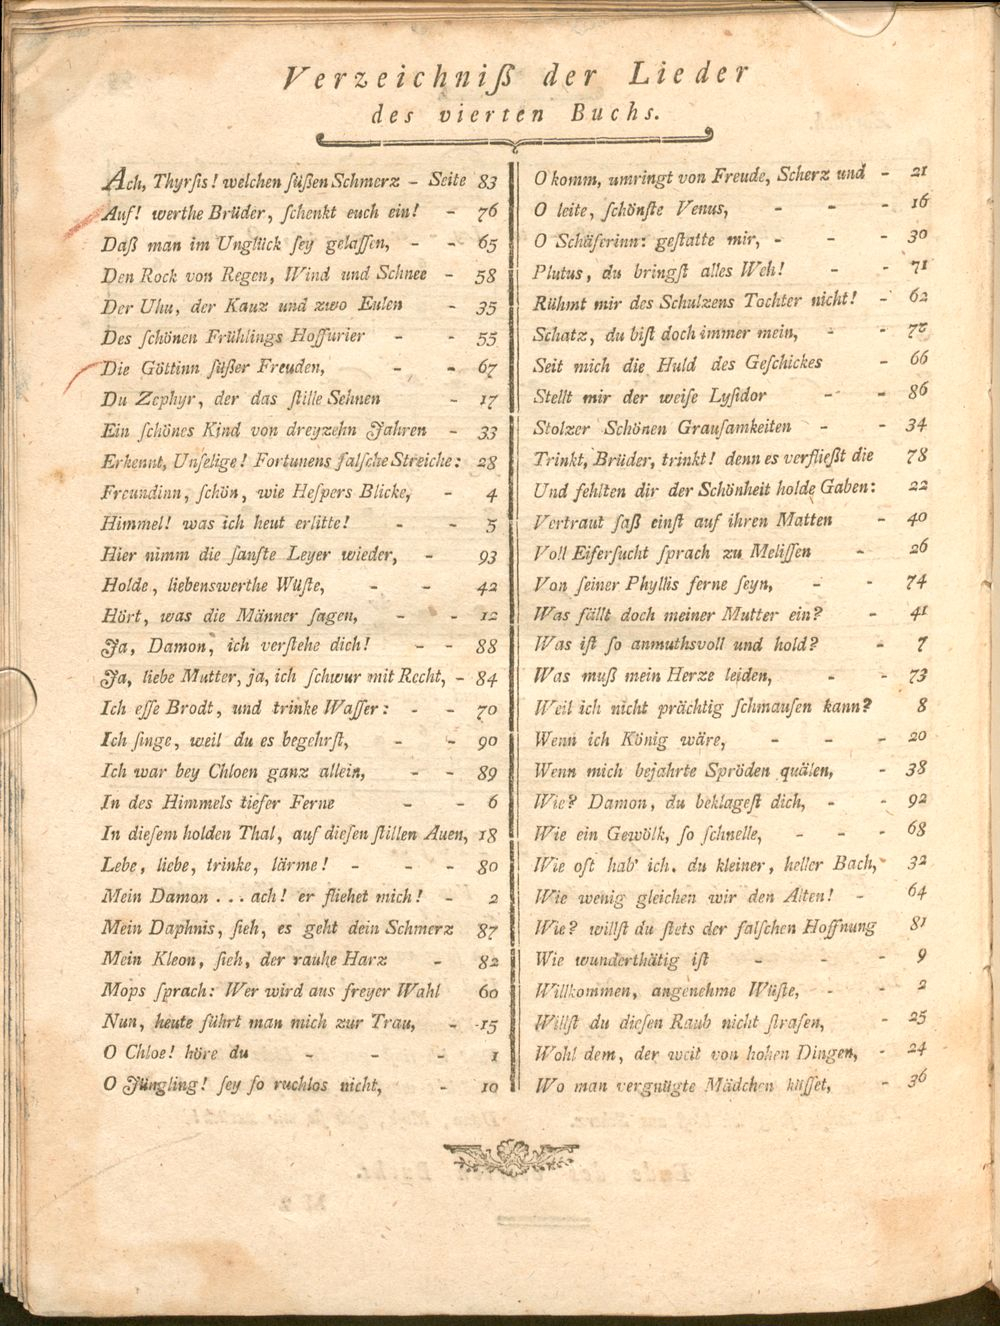 Verzeichniß der Lieder
des vierten Buchs.
Ach, Thyrſis! welchen ſüßen Schmerz – Seite 83
Auf! werthe Brüder, ſchenkt euch ein! – 76
Daß man im Unglück ſey gelaſſen, – – 65
Den Rock von Regen, Wind und Schnee – 58
Der Uhu, der Kauz und zwo Eulen – 35
Des ſchönen Frühlings Hoffurier – – 55
Die Göttinn ſüßer Freuden, – – 67
Du Zephyr, der das ſtille Sehnen – 17
Ein ſchönes Kind von dreyzehn Jahren – 33
Erkennt, Unſelige! Fortunens falſche Streiche: 28
Freundinn, ſchön, wie Heſpers Blicke, – 4
Himmel! was ich heut erlitte! – – 5
Hier nimm die ſanfte Leyer wieder, – 93
Holde, liebenswerthe Wüſte, – – 42
Hört, was die Männer ſagen, – – 12
Ja, Damon, ich verſtehe dich! – – 88
Ja, liebe Mutter, ja, ich ſchwur mit Recht, – 84
Ich eſſe Brodt, und trinke Waſſer: – – 70
Ich ſinge, weil du es begehrſt, – – 90
Ich war bey Chloen ganz allein, – – 89
In des Himmels tiefer Ferne – – 6
In dieſem holden Thal, auf dieſen ſtillen Auen, 18
Lebe, liebe, trinke, lärme! – – – 80
Mein Damon ... ach! er fliehet mich! – 2
Mein Daphnis, ſieh, es geht dein Schmerz 87
Mein Kleon, ſieh, der rauhe Harz – 82
Mops ſprach: Wer wird aus freyer Wahl 60
Nun, heute führt man mich zur Trau, – 15
O Chloe! höre du – – – 1
O Jüngling! ſey ſo ruchlos nicht, – 10
O komm, umringt von Freude, Scherz und – 21
O leite, ſchönſte Venus, – – – 16
O Schäferinn: geſtatte mir, – – – 30
Plutus, du bringſt alles Weh! – – 71
Rühmt mir des Schulzens Tochter nicht! – 62
Schatz, du biſt doch immer mein, – –
Seit mich die Huld des Geſchickes – 66
Stellt mir der weiſe Lyſidor – – 86
Stolzer Schönen Grauſamkeiten – – 34
Trinkt, Brüder, trinkt! denn es verfließt die 78
Und fehlten dir der Schönheit holde Gaben: 22
Vertraut ſaß einſt auf ihren Matten – 40
Voll Eiferſucht ſprach zu Meliſſen – 26
Von ſeiner Phyllis ferne ſeyn, – – 74
Was fällt doch meiner Mutter ein? – 41
Was iſt ſo anmuthsvoll und hold? – 7
Was muß mein Herze leiden, – – 73
Weil ich nicht prächtig ſchmauſen kann? 8
Wenn ich König wäre, – – – 20
Wenn mich bejahrte Spröden quälen, – 38
Wie? Damon, du beklageſt dich, – – 92
Wie ein Gewölk, ſo ſchnelle, – – – 68
Wie oft hab' ich, du kleiner, heller Bach, 32
Wie wenig gleichen wir den Alten! – 64
Wie? willſt du ſtets der falſchen Hoffnung 81
Wie wunderthätig iſt – – – 9
Willkommen, angenehme Wüſte, – – 2
Willſt du dieſen Raub nicht ſtrafen, – 25
Wohl dem, der weit von hohen Dingen, – 24
Wo man vergnügte Mädchen küſſet, – 36